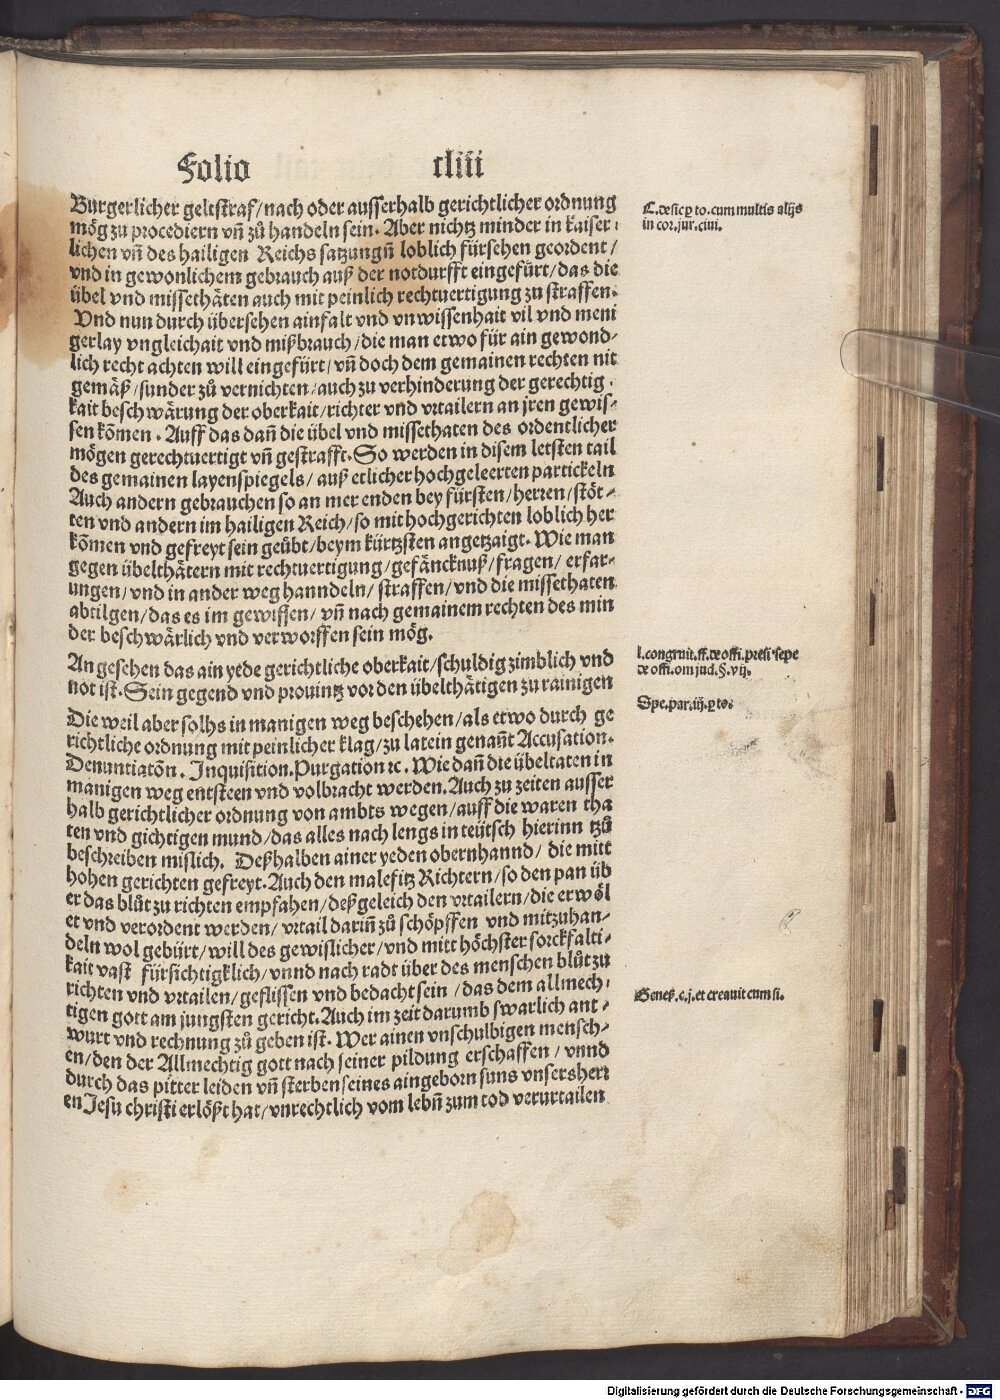 Folio cliii
Burgerlicher geltstraf/nach oder ausserhalb gerichtlicher ordnung
mög zu procediern vñ zů handeln sein. Aber nichtz minder in kaiser
lichen vñ des hailigen Reichs satzungñ loblich fürsehen geordent/
vnd in gewonlichem gebrauch auß der notdurfft eingefürt/das die
übel vnd missethäten auch mit peinlich rechtuertigung zu straffen.
Vnd nun durch übersehen ainfalt vnd vnwissenhait vil vnd meni
gerlay vngleichait vnd mißbrauch/die man etwo für ain gewond-
lich recht achten will eingefürt/vñ doch dem gemainen rechten nit
gemäß/sunder zů vernichten/auch zu verhinderung der gerechtig-
kait beschwärung der oberkait/richter vnd vrtailern an jren gewis-
sen kõmen. Auff das dañ die übel vnd missethaten des ordentlicher
mögen gerechtuertigt vñ gestrafft. So werden in disem letsten tail
des gemainen layenspiegels/auß etlicher hochgeleerten partickeln
Auch andern gebrauchen so an mer enden bey fürsten/herren/stöt-
ten vnd andern im hailigen Reich/so mit hochgerichten loblich her
kõmen vnd gefreyt sein geübt/beym kürtzsten angetzaigt. Wie man
gegen übelthätern mit rechtuertigung/gefäncknuß/fragen/erfar-
ungen/vnd in ander weg hanndeln/straffen/vnd die missethaten
abtilgen/das es im gewissen/vñ nach gemainem rechten des min
der beschwärlich vnd verworffen sein mög.
An gesehen das ain yede gerichtliche oberkait/schuldig zimblich vnd
not ist. Sein gegend vnd prouintz vor den übelthätigen zu rainigen
Die weil aber solhs in manigen weg beschehen/als etwo durch ge
richtliche ordnung mit peinlicher klag/zu latein genañt Accusation.
Denuntiatõn. Inquisition. Purgation ꝛc. Wie dañ die übeltaten in
manigen weg entsteen vnd volbracht werden. Auch zu zeiten ausser
halb gerichtlicher ordnung von ambts wegen/auff die waren tha
ten vnd gichtigen mund/das alles nach lengs in teütsch hierinn tzů
beschreiben mislich. Deßhalben ainer yeden obernhannd/die mitt
hohen gerichten gefreyt. Auch den malefitz Richtern/so den pan üb
er das blůt zu richten empfahen/deßgeleich den vrtailern/die erwöl
et vnd verordent werden/vrtail dariñ zů schöpffen vnd mitzuhan-
deln wol gebürt/will des gewislicher/vnd mitt höchster sorckfalti-
kait vast fürsichtigklich/vnnd nach radt über des menschen blůt zu
richten vnd vrtailen/geflissen vnd bedacht sein/das dem allmech-
tigen gott am jungsten gericht. Auch im zeit darumb swarlich ant-
wurt vnd rechnung zů geben ist. Wer ainen vnschulbigen mensch-
en/den der Allmechtig gott nach seiner pildung erschaffen/vnnd
durch das pitter leiden vñ sterben seines aingeborn suns vnsers herr
en Jesu christi erlößt hat/vnrechtlich vom lebñ zum tod verurtailen
C. de sicꝑ to. cum multis alijs
in cor. jur. ciui.
l. congruit. ff. de offi. presi. sepe
de offi. om jud. §. vij.
Spe. par. iij. ꝑ to.
Geneß. c. j. et creauit cum si.
Digitalisierung gefördert durch die Deutsche Forschungsgemeinschaft - DFG